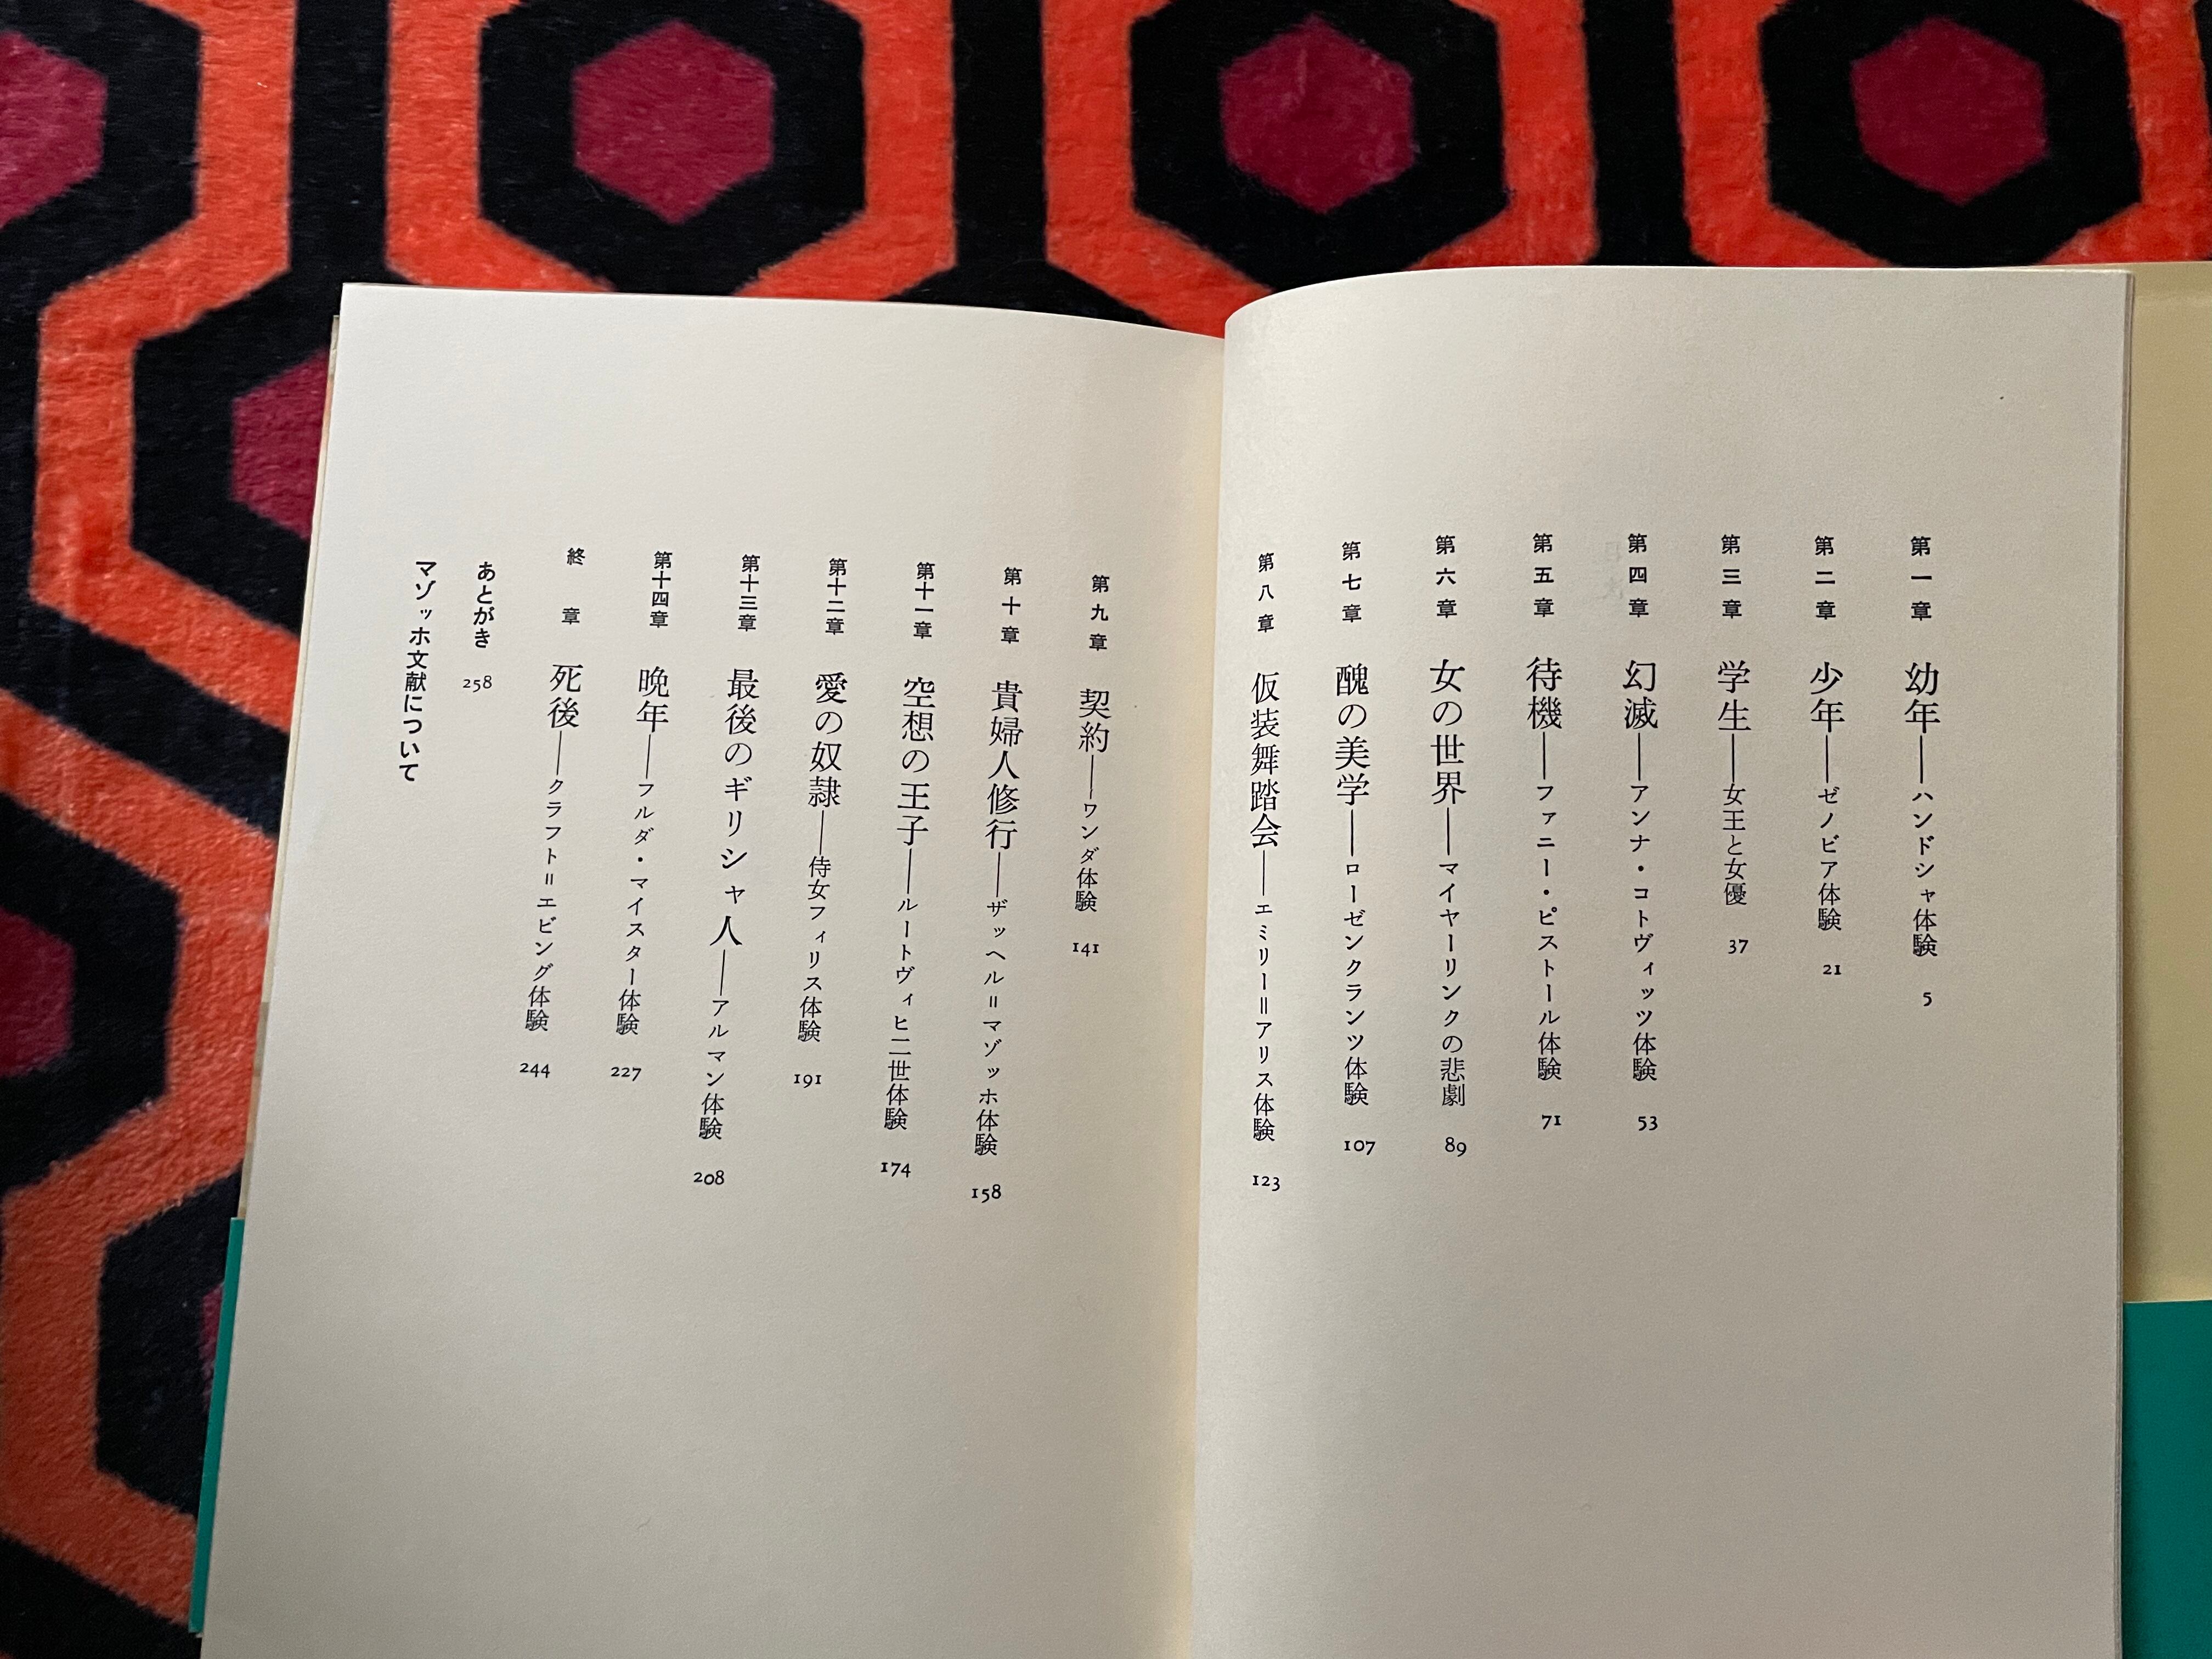 第一章 幼年——ハンドシャ体験 5
第二章 少年——ゼノビア体験 21
第三章 学生——女王と女優 37
第四章 幻滅——アンナ・コトヴィッツ体験 53
第五章 待機——ファニー・ピストール体験 71
第六章 女の世界——マイヤーリンクの悲劇 89
第七章 醜の美学——ローゼンクランツ体験 107
第八章 仮装舞踏会——エミリー=アリス体験 123
第九章 契約——ワンダ体験 141
第十章 貴婦人修行——ザッヘル=マゾッホ体験 158
第十一章 空想の王子——ルートヴィヒ二世体験 174
第十二章 愛の奴隷——侍女フィリス体験 191
第十三章 最後のギリシャ人——アルマン体験 208
第十四章 晩年——フルダ・マイスター体験 227
終章 死後——クラフト=エビング体験 244
あとがき 258
マゾッホ文献について